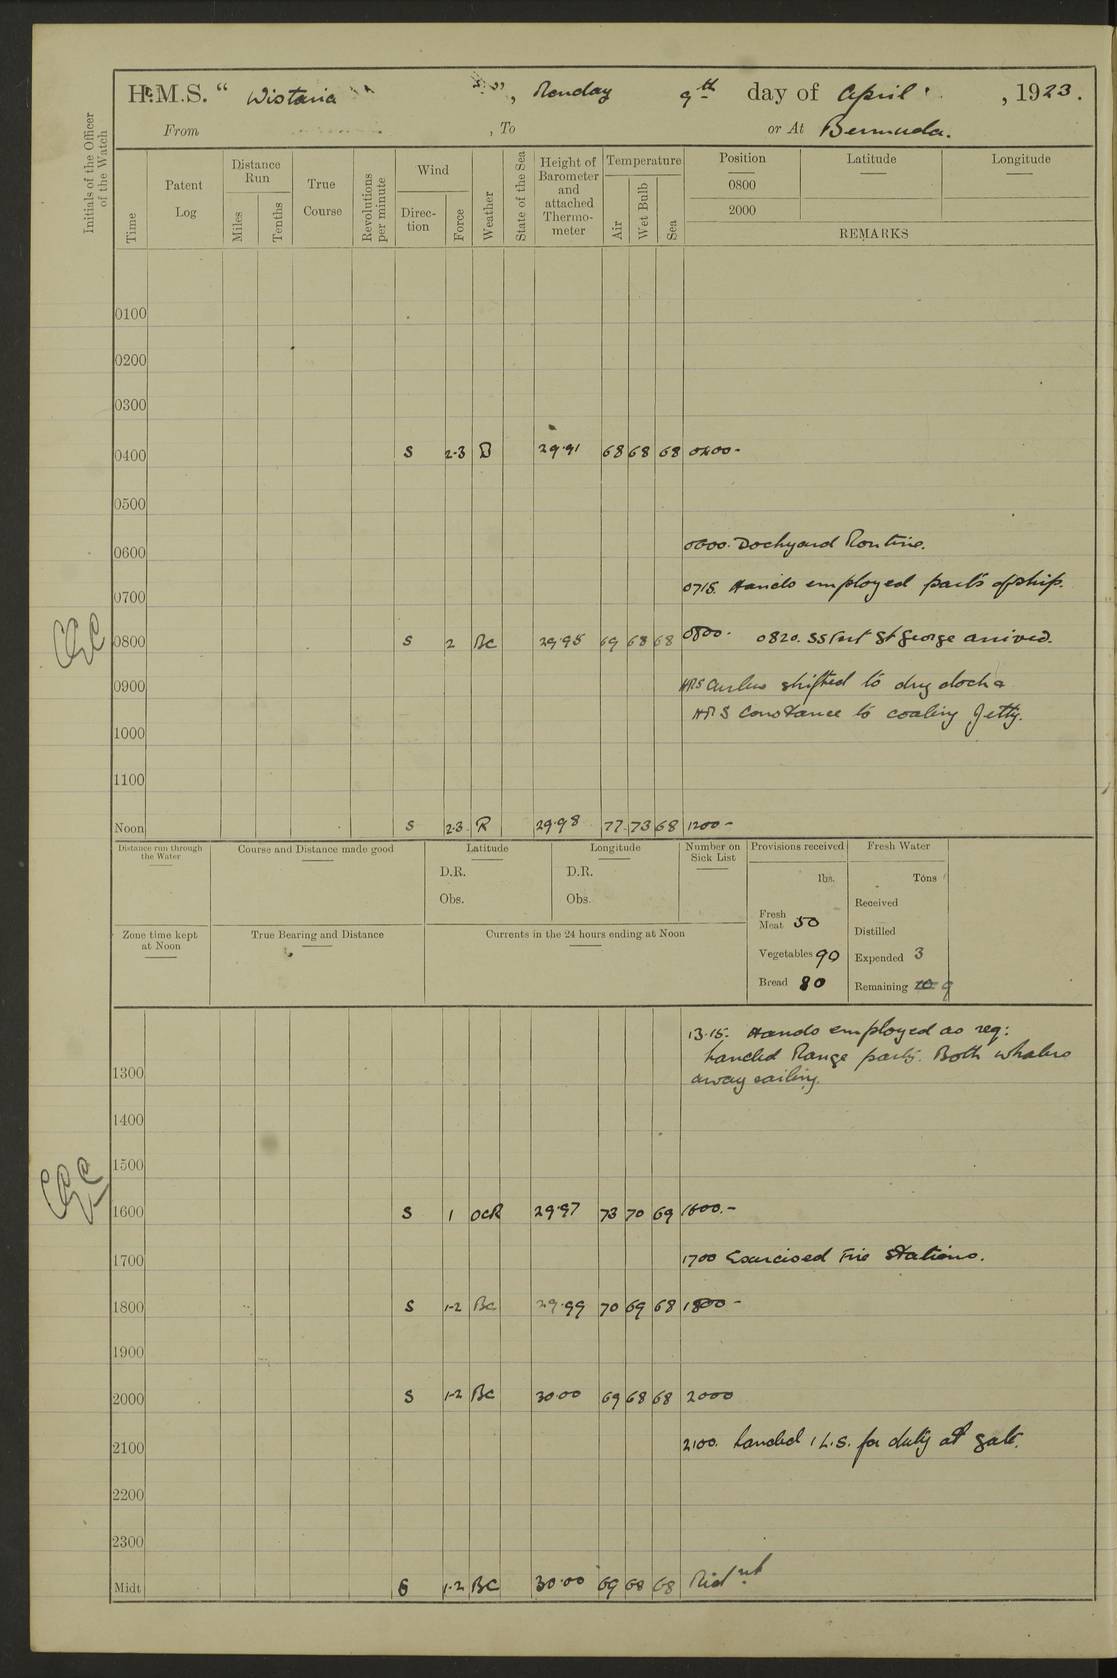 H.M.S. “ Wistaria ” , Monday 9th day of April , 1923.
From , To or At Bermuda.
Initials of the Officer of the Watch
Time
Patent Log
Distance Run
Miles
Tenths
True Course
Revolutions per minute
Wind
Direction
Force
Weather
State of the Sea
Height of Barometer and attached Thermometer
Temperature
Air
Wet Bulb
Sea
Position Latitude Longitude
0800
2000
REMARKS
0100
0200
0300
0400 S 2-3 29.91 68 68 68 0400-
0500
0600 0600. Dockyard Routine.
0700 0715. Hands employed parts of ship.
0800 S 2 BC 29.95 69 68 68 0800. 0820. SS Fort St George arrived.
0900 HMS Curlew shifted to dry dock &
HMS Constance to coaling Jetty.
1000
1100
Noon S 2-3 R 29.98 77 73 68 1200-
Distance run through the Water
Course and Distance made good
Latitude
D.R.
Obs.
Longitude
D.R.
Obs.
Number on Sick List
Provisions received
lbs.
Fresh Meat 50
Vegetables 90
Bread 80
Fresh Water
Tons
Received
Distilled
Expended 3
Remaining 9
Zone time kept at Noon
True Bearing and Distance
Currents in the 24 hours ending at Noon
13.15. Hands employed as req:
Landed Range party. Both whalers
away sailing.
1300
1400
1500
1600 S 1 OCR 29.97 73 70 69 1600.-
1700 1700 Exercised Fire Stations.
1800 S 1-2 BC 29.99 70 69 68 1800-
1900
2000 S 1-2 BC 30.00 69 68 68 2000
2100 2100. Landed 1 L.S. for duty at gate.
2200
2300
Midt S 1-2 BC 30.00 69 68 68 Midnt